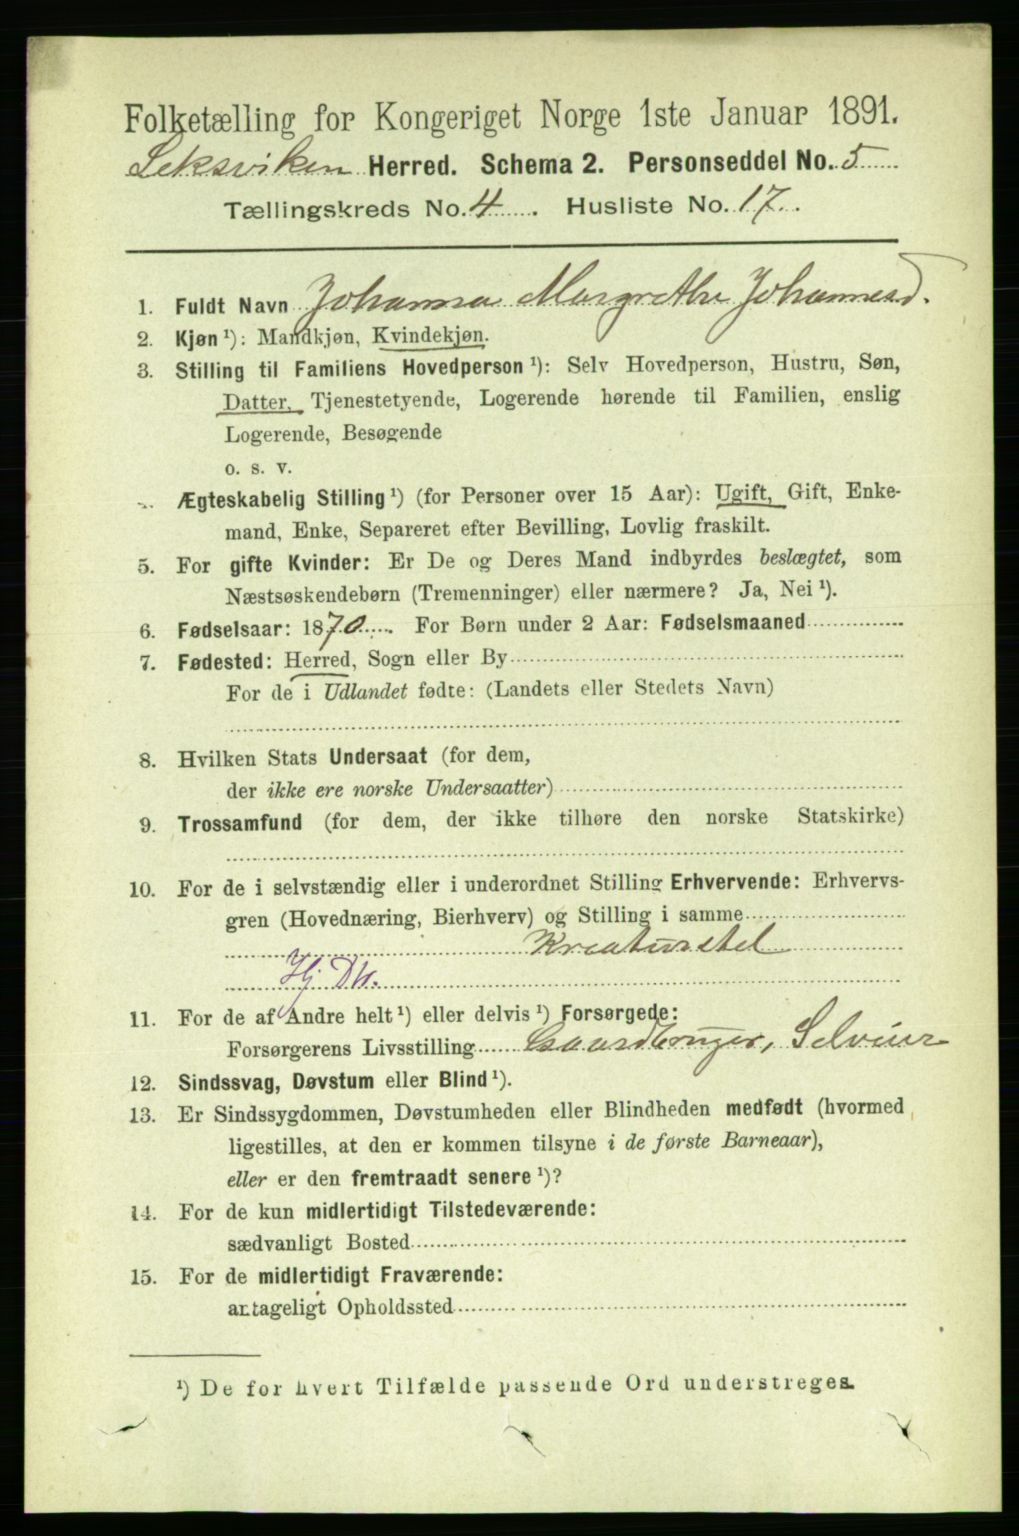 Folketælling for Kongeriget Norge 1ste Januar 1891.
Leksviken Herred. Schema 2. Personseddel No. 5
Tællingskreds No. 4. Husliste No. 17.
1. Fuldt Navn Johanna Margrethe Johannesd.
2. Kjøn ¹): Mandkjøn, Kvindekjøn.
3. Stilling til Familiens Hovedperson ¹): Selv Hovedperson, Hustru, Søn,
Datter, Tjenestetyende, Logerende hørende til Familien, enslig
Logerende, Besøgende
o. s. v.
Ægteskabelig Stilling ¹) (for Personer over 15 Aar): Ugift, Gift, Enke-
mand, Enke, Separeret efter Bevilling, Lovlig fraskilt.
5. For gifte Kvinder: Er De og Deres Mand indbyrdes beslægtet, som
Næstsøskendebørn (Tremenninger) eller nærmere? Ja, Nei ¹).
6. Fødselsaar: 1870. For Børn under 2 Aar: Fødselsmaaned
7. Fødested: Herred, Sogn eller By
For de i Udlandet fødte: (Landets eller Stedets Navn)
8. Hvilken Stats Undersaat (for dem,
der ikke ere norske Undersaatter)
9. Trossamfund (for dem, der ikke tilhøre den norske Statskirke)
10. For de i selvstændig eller i underordnet Stilling Erhvervende: Erhvervs-
gren (Hovednæring, Bierhverv) og Stilling i samme
Kreaturstel
Hj Dtr.
11. For de af Andre helt ¹) eller delvis ¹) Forsørgede:
Forsørgerens Livsstilling Gaardbruger, Selveier
12. Sindssvag, Døvstum eller Blind ¹).
13. Er Sindssygdommen, Døvstumheden eller Blindheden medfødt (hvormed
ligestilles, at den er kommen tilsyne i de første Barneaar),
eller er den fremtraadt senere ¹)?
14. For de kun midlertidigt Tilstedeværende:
sædvanligt Bosted
15. For de midlertidigt Fraværende:
antageligt Opholdssted
¹) De for hvert Tilfælde passende Ord understreges.